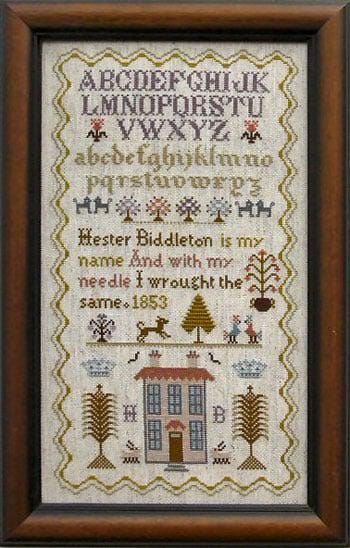 ABCDEFGHIJK
LMNOPQRSTU
VWXYZ
abcdefghijklmno
pqrstuvwxyz
Hester Biddleton is my
name And with my
needle I wrought the
same. 1853
H B